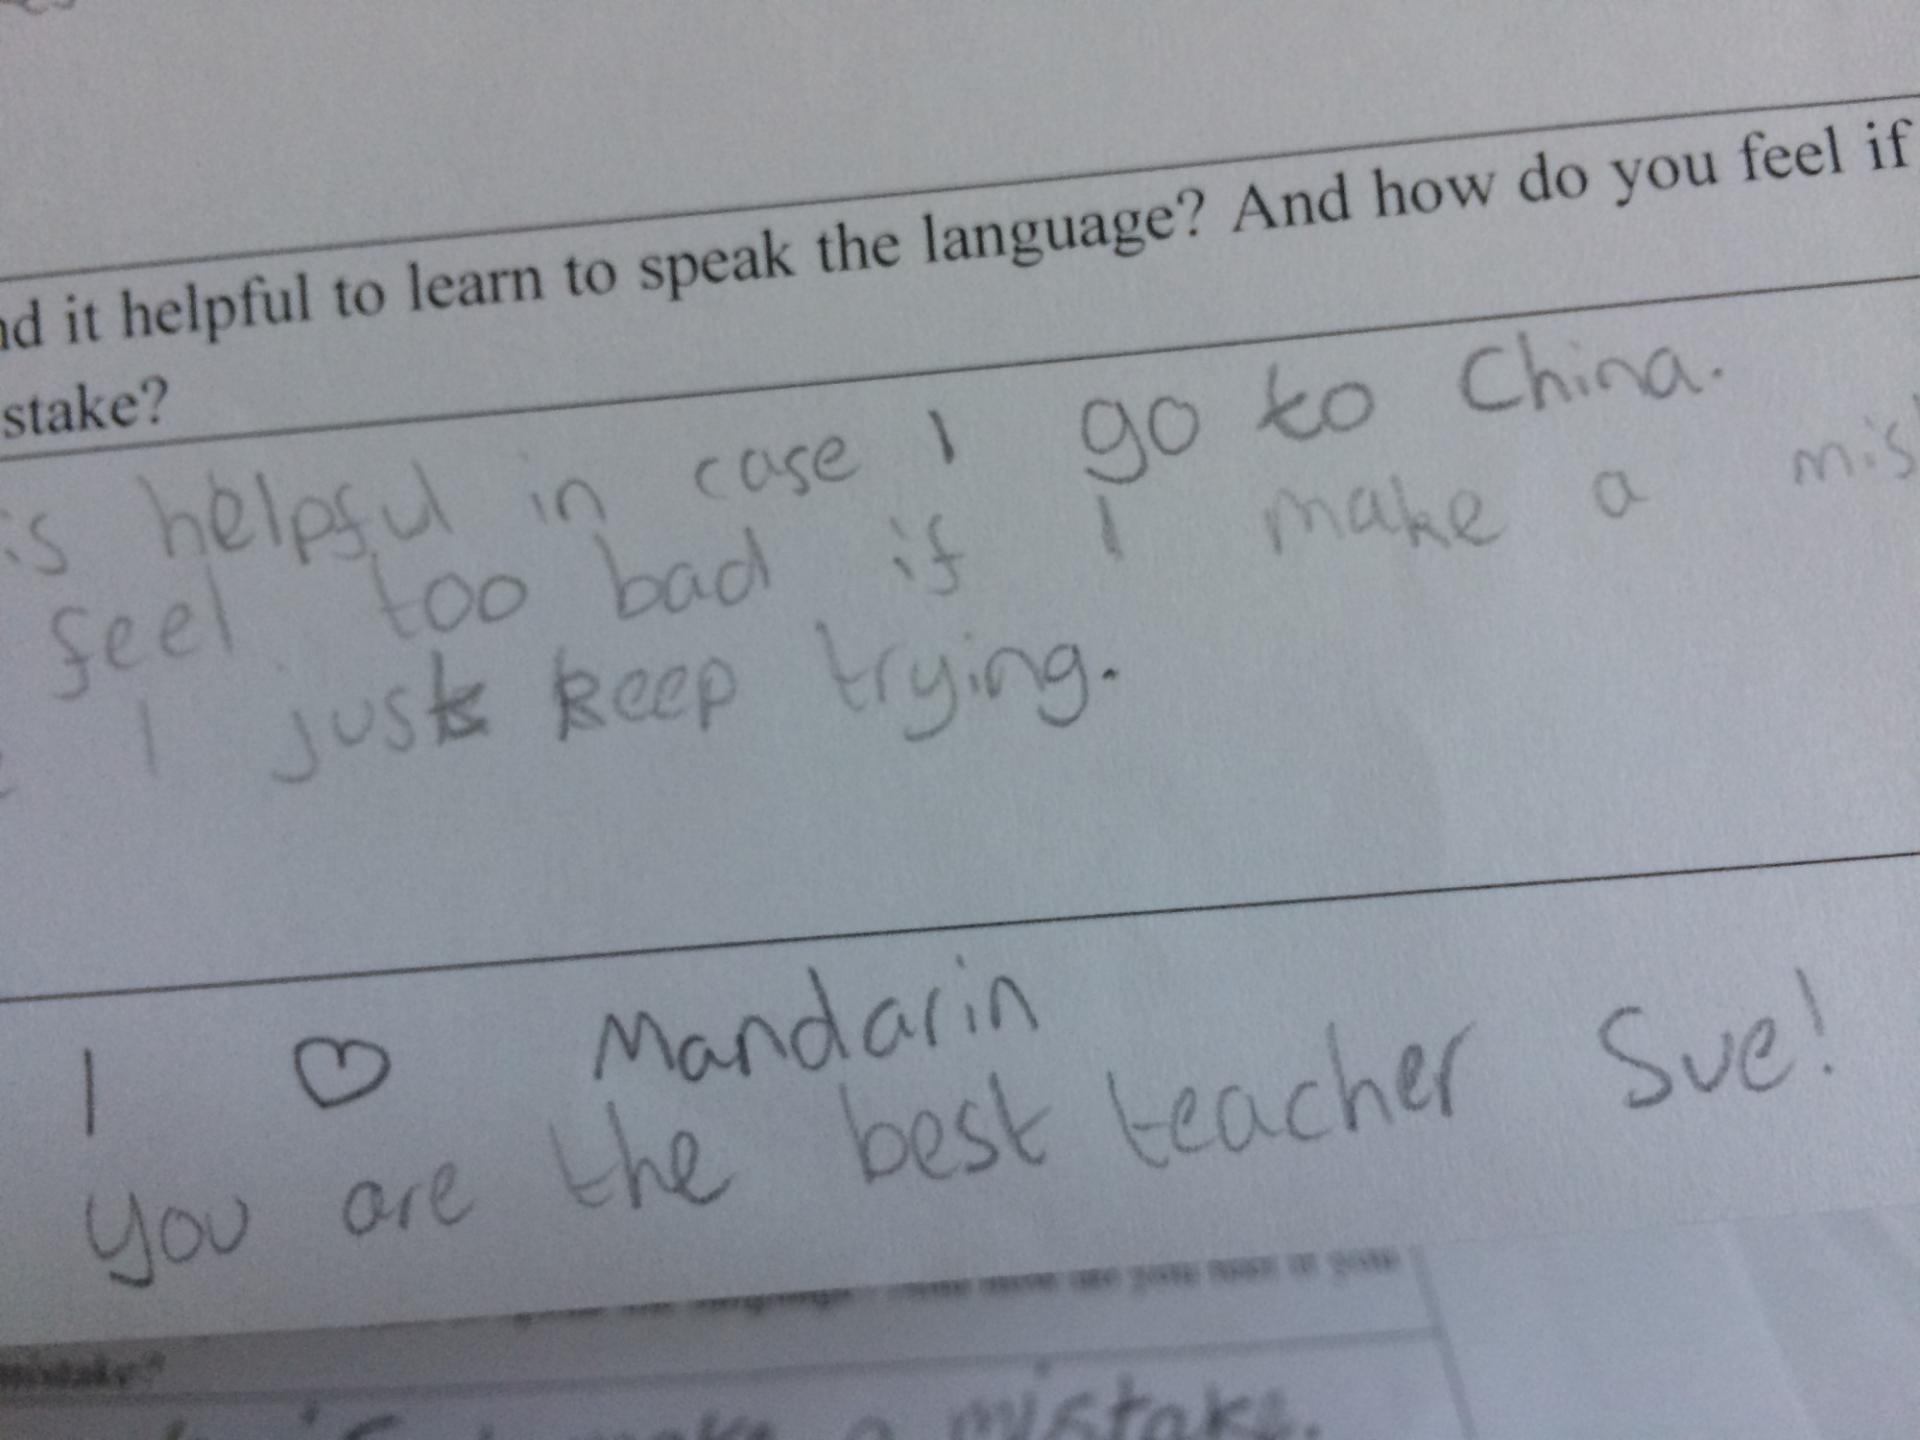 nd it helpful to learn to speak the language? And how do you feel if
stake?
is helpful in case I go to China.
feel too bad if I make a mis
I just keep trying.
I ♡ Mandarin
you are the best teacher Sue!
mistake?
if I make a mistake.